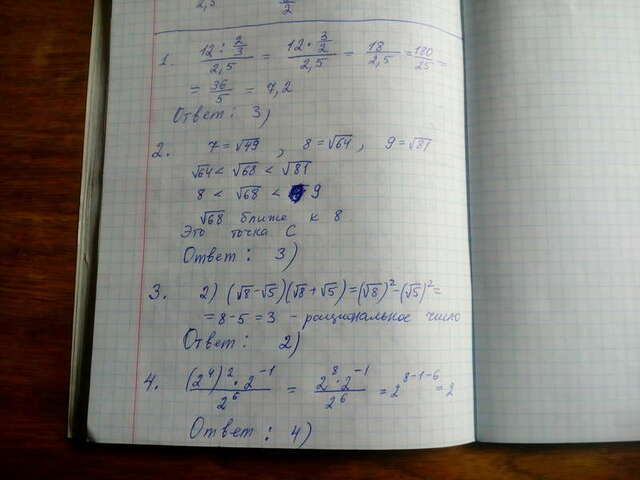 2,5 2
1. 12 : 2/3 / 2,5 = 12 · 3/2 / 2,5 = 18/2,5 = 180/25 =
= 36/5 = 7,2
Ответ: 3)
2. 7 = √49 , 8 = √64 , 9 = √81
√64 < √68 < √81
8 < √68 < 9
√68 ближе к 8
Это точка C
Ответ: 3)
3. 2) (√8-√5)(√8+√5)=(√8)²-(√5)²=
= 8-5 = 3 - рациональное число
Ответ: 2)
4. (2⁴)² · 2⁻¹ / 2⁶ = 2⁸ · 2⁻¹ / 2⁶ = 2⁸⁻¹⁻⁶ = 2
Ответ: 4)